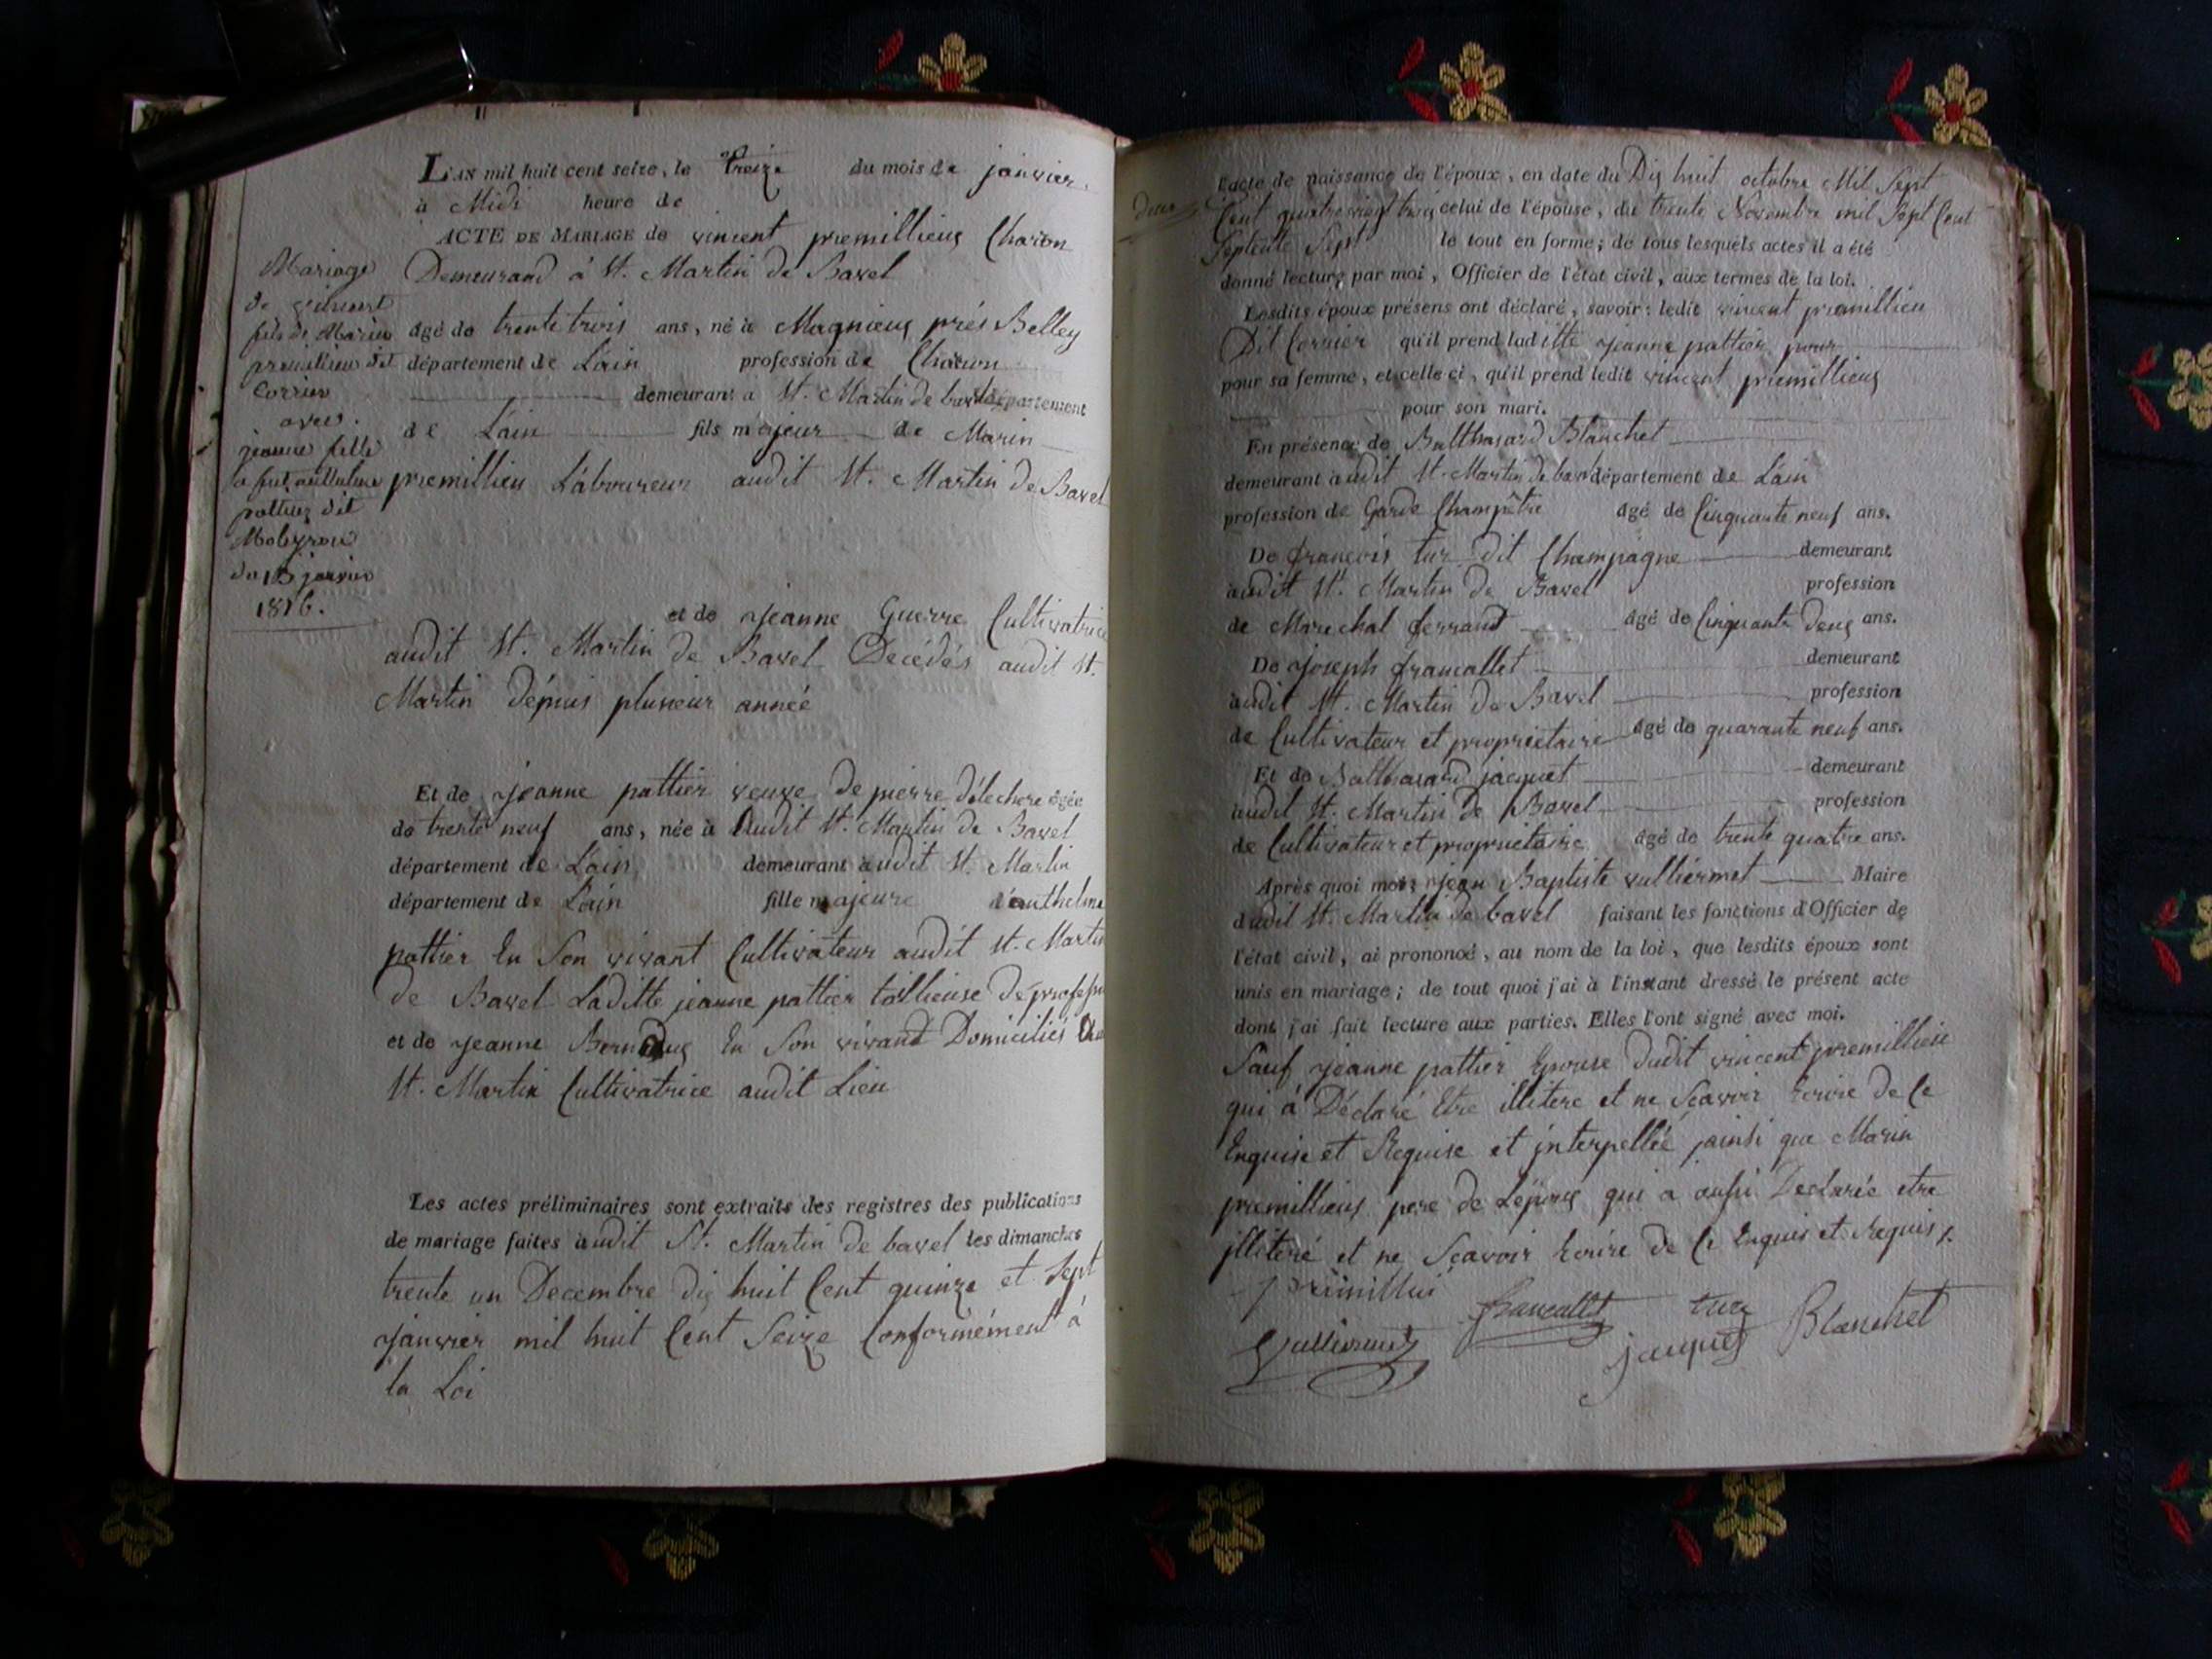 L'an mil huit cent seize, le treize du mois de janvier,
à Midi heure de
ACTE DE MARIAGE de vincent premillieux Charon
Demeurand à St. Martin de Bavel
âgé de trente trois ans, né à Magnieux prés Belley
département de L'ain profession de Charon
demeurant à St. Martin de bavel département
de L'ain fils majeur de Marin
premillieu Laboureur audit St. Martin de Bavel
et de jeanne Guerre Cultivatrice
audit St. Martin de Bavel Decédés audit St.
Martin dépuis plusieur année
Et de jeanne pattier veuve de pierre délechere âgée
de trente neuf ans, née à Audit St. Martin de Bavel
département de L'ain demeurant audit St. Martin
département de L'ain fille majeure d'anthelme
pattier En Son vivant Cultivateur audit St. Martin
de Bavel Laditte jeanne pattier taillieuse de
et de jeanne En Son vivant Domiciliés
St. Martin Cultivatrice audit Lieu
Les actes préliminaires sont extraits des registres des publications
de mariage faites audit St. Martin de bavel les dimanches
trente un Decembre dix huit Cent quinze et Sept
janvier mil huit Cent Seize Conformément à
la Loi
Mariage
de vincent
fils de Marin
premillieu dit
Corrier
avec
jeanne fille
à feu anthelme
pattier dit
du 13 janvier
1816.
deux
l'acte de naissance de l'époux, en date du Dix huit octobre Mil Sept
Cent quatre vingt trois celui de l'épouse, du trente Novembre mil Sept Cent
Septente Sept le tout en forme; de tous lesquels actes il a été
donné lecture par moi, Officier de l'état civil, aux termes de la loi.
Lesdits époux présens ont déclaré, savoir: ledit vincent premillieu
Dit Corrier qu'il prend laditte jeanne pattier pour
pour sa femme, et celle ci, qu'il prend ledit vincent premillieux
pour son mari.
En présence de Balthazard Blanchet
demeurant audit St. Martin de bavel département de L'ain
profession de Garde Champêtre âgé de Cinquante neuf ans.
De francois tur dit Champagne demeurant
audit St. Martin de Bavel profession
de Marechal ferrant âgé de Cinquante Deux ans.
De joseph francallet demeurant
audit St. Martin de Bavel profession
de Cultivateur et proprietaire âgé de quarante neuf ans.
Et de Balthazard jacquet demeurant
audit St. Martin de Bavel profession
de Cultivateur et proprietaire âgé de trente quatre ans.
Après quoi moi, jean Baptiste vulliermet Maire
dudit St. Martin de bavel faisant les fonctions d'Officier de
l'état civil, ai prononcé, au nom de la loi, que lesdits époux sont
unis en mariage; de tout quoi j'ai à l'instant dressé le présent acte
dont j'ai fait lecture aux parties. Elles l'ont signé avec moi.
Sauf jeanne pattier Epouse dudit vincent premillieu
qui à Déclaré Etre illitere et ne Scavoir Ecrire de Ce
Enquise et Requise et interpellée, ainsi que Marin
premillieux pere de Lépoux qui a aussi Declarée etre
illiteré et ne Scavoir Ecrire de Ce Enquis et Requis
premillui
francallet tur Blanchet
Vulliermet jacquet